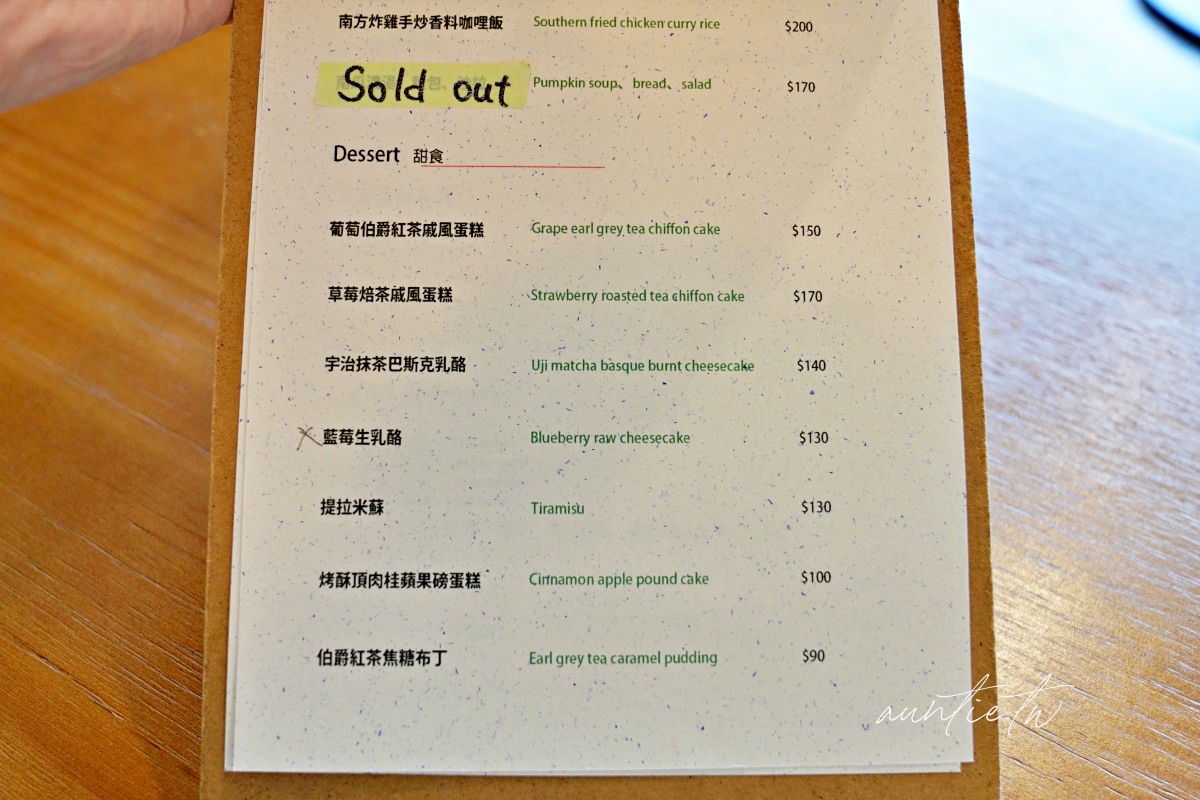 南方炸雞手炒香料咖哩飯 Southern fried chicken curry rice $200
Sold out Pumpkin soup、 bread、 salad $170
Dessert 甜食
葡萄伯爵紅茶戚風蛋糕 Grape earl grey tea chiffon cake $150
草莓焙茶戚風蛋糕 Strawberry roasted tea chiffon cake $170
宇治抹茶巴斯克乳酪 Uji matcha basque burnt cheesecake $140
藍莓生乳酪 Blueberry raw cheesecake $130
提拉米蘇 Tiramisu $130
烤酥頂肉桂蘋果磅蛋糕 Cinnamon apple pound cake $100
伯爵紅茶焦糖布丁 Earl grey tea caramel pudding $90
auntie.tw